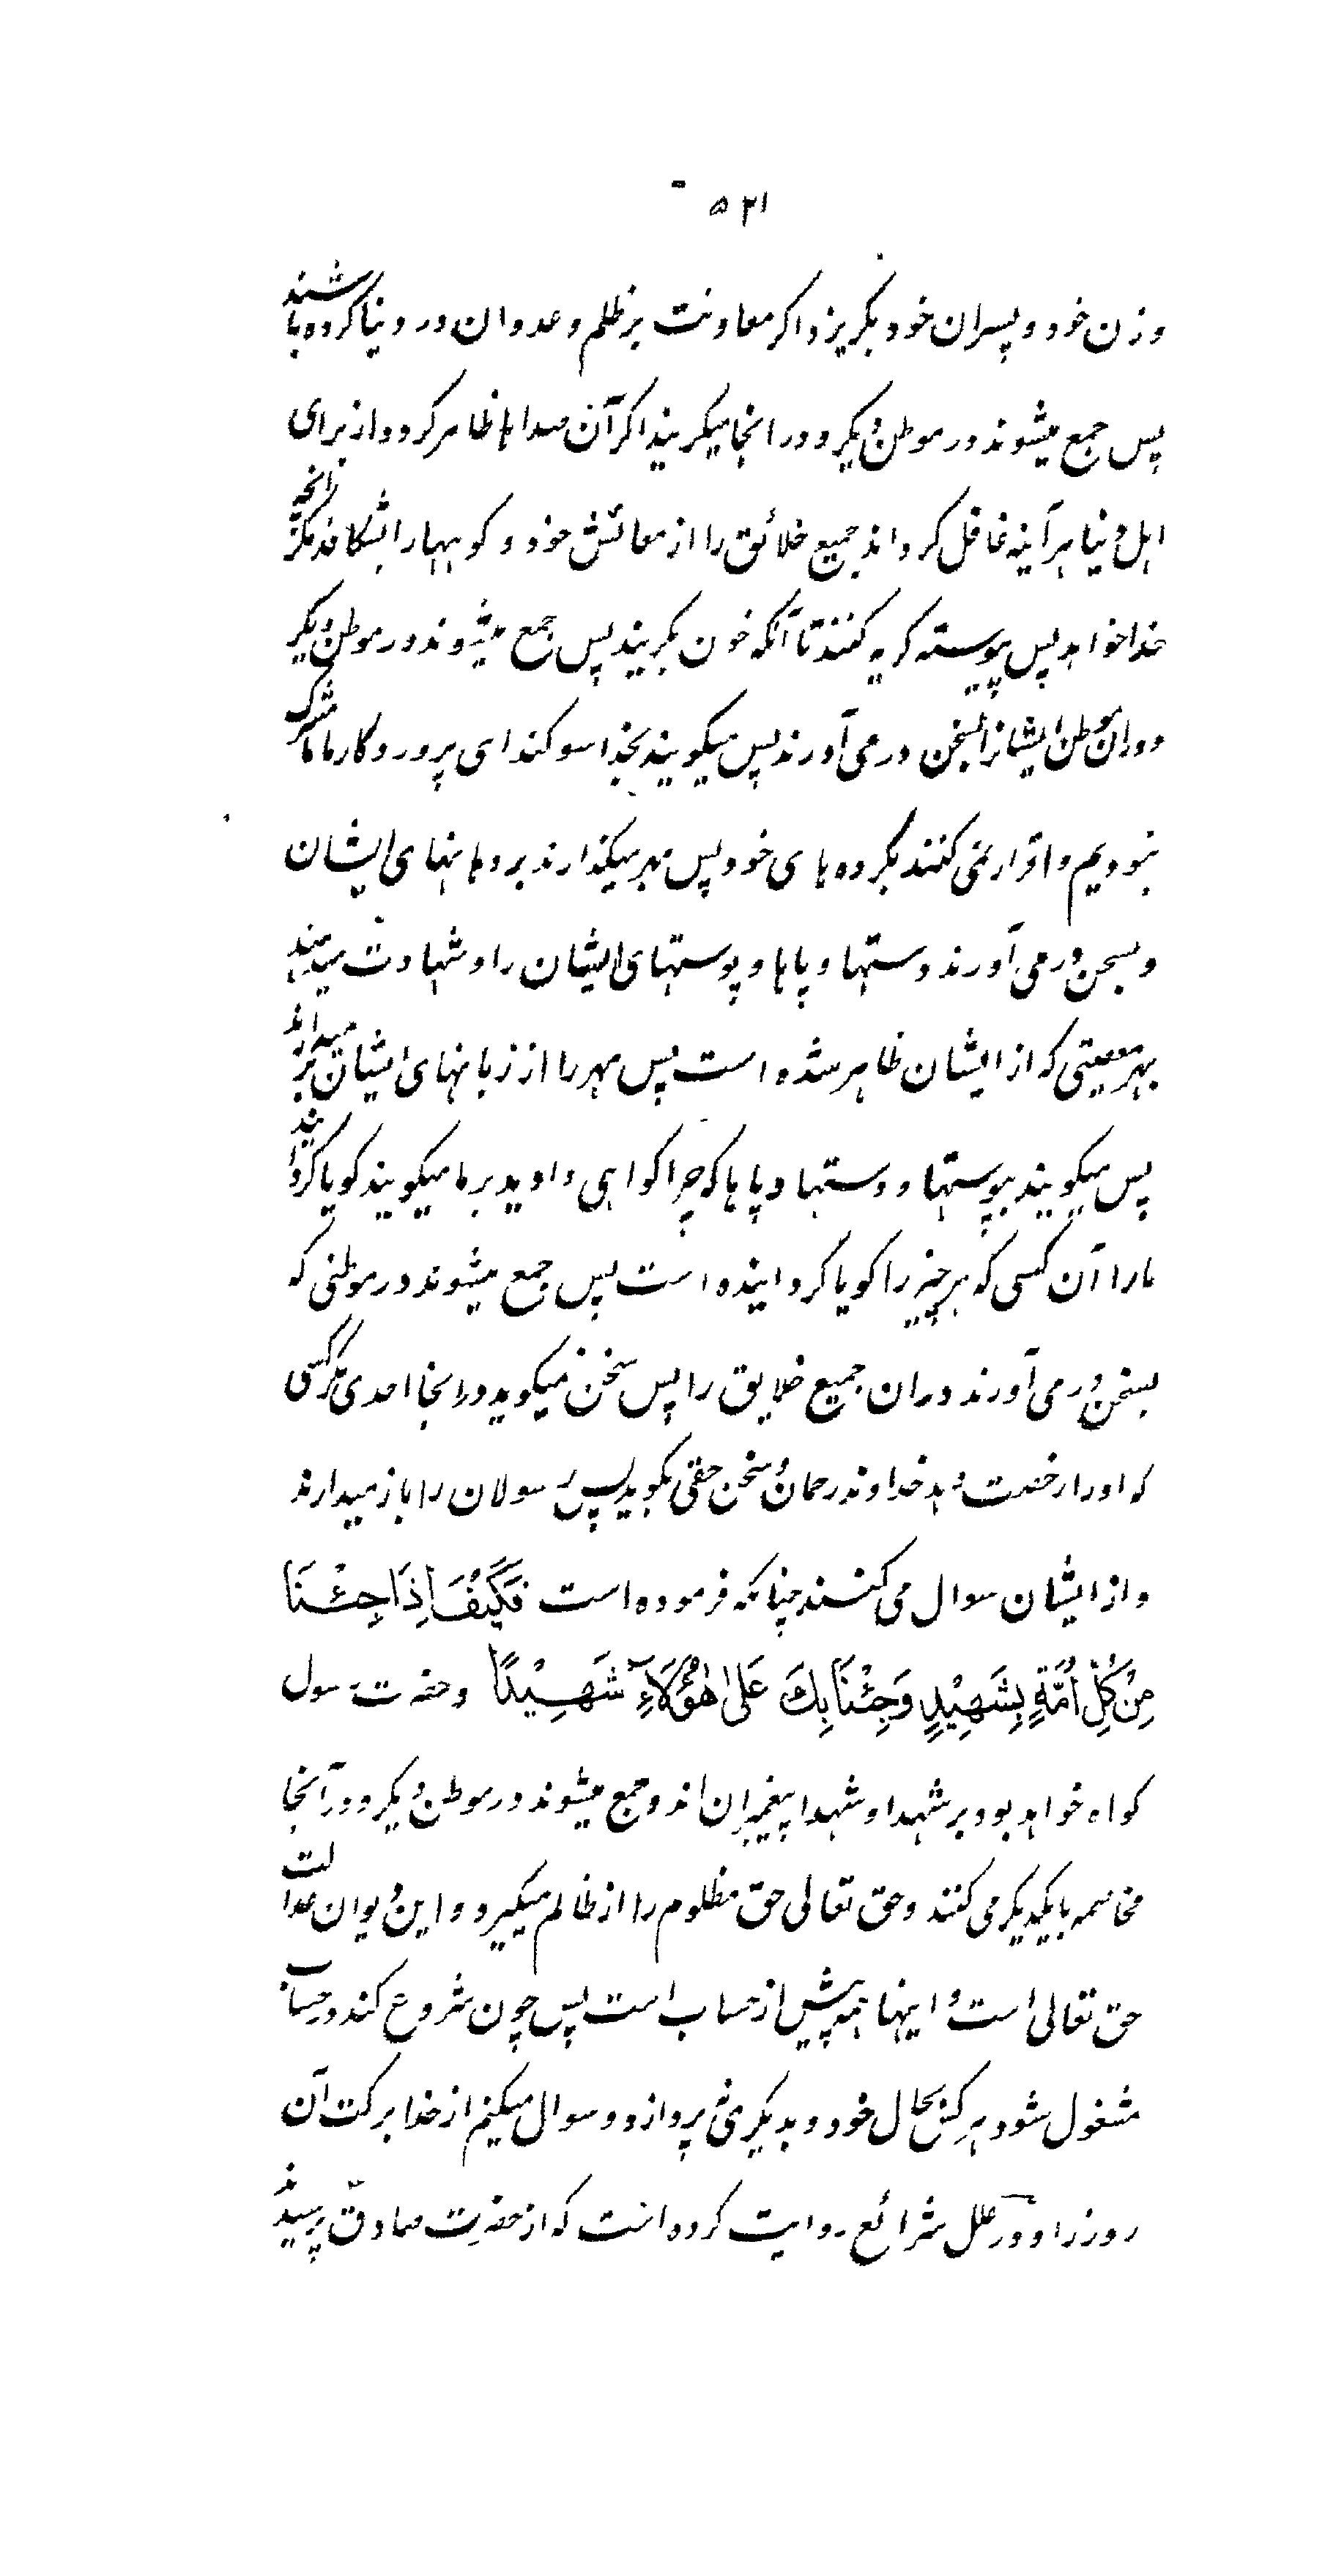 ۵۲۱
و زن خود و پسران خود بگریزد اگر معاونت بر ظلم و عدوان در دنیا کرده باشند
پس جمع میشوند در موطن دیگر و در انجا میگریند اگر آن صداها ظاهر گردد از برای
اهل دنیا هرآینه غافل گرداند جمیع خلائق را از معائش خود و کوبهها را بشکافد مگر آنچه
خدا خواهد پس پیوسته گریه کنند تا آنکه خون بگریند پس جمع میشوند در موطن دیگر
و دران موطن ایشانرا بسخن در می آورند پس میگویند بخدا سوگند ای پروردگار ما ما مشرک
نبودیم و اقرار نمی کنند بکرده های خود پس مهر میگذارند بر دهانهای ایشان
و بسخن در می آورند دستها و پاها و پوستهای ایشان را و شهادت میدهند
بهر معصیتی که از ایشان ظاهر شده است پس مهر را از زبانهای ایشان بر میدارند
پس میگویند بپوستها و دستها و پاها که چرا گواهی دادید بر ما میگویند گویا گردانید
ما را آن کسی که هر چیز را گویا گردانیده است پس جمع میشوند در موطنی که
بسخن در می آورند دران جمیع خلایق را پس سخن نمیگوید در انجا احدی مگر کسی
که اورا رخصت دهد خداوند رحمان و سخن حقی بگوید پس رسولان را باز میدارند
و از ایشان سوال می کنند چنانکه فرموده است فَكَيْفَ اِذَا جِئْنَا
مِنْ كُلِّ اُمَّةٍ بِشَهِيْدٍ وَجِئْنَا بِكَ عَلٰى هٰؤُلَآءِ شَهِيْدًا و حضرت رسول
گواه خواهد بود بر شهدا و شهدا پیغمبران اند و جمع میشوند در موطن دیگر و در آنجا
مخاصمه با یکدیگر می کنند و حق تعالی حق مظلوم را از ظالم میگیرد و این دیوان عدالت
حق تعالی است و اینها همه پیش از حساب است پس چون شروع کند در حساب
مشغول شود هر کس بحال خود و بدیگری نمی پردازد و سوال میکنم از خدا برکت آن
روز را و در علل شرائع روایت کرده است که از حضرت صادق پرسیدند